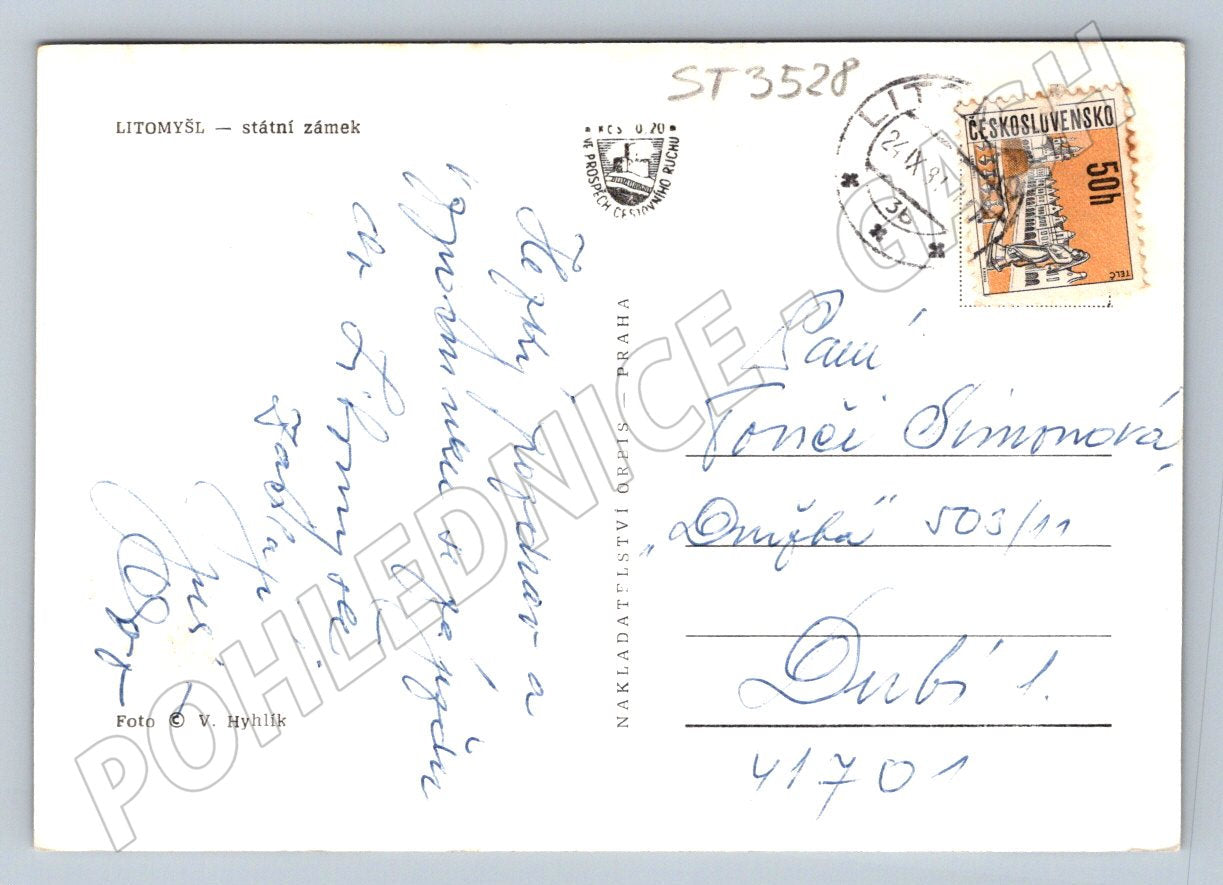 LITOMYŠL — státní zámek
ST 3528
KČS 0,20
VE PROSPĚCH CESTOVNÍHO RUCHU
LIT
24.IX.
3b
ČESKOSLOVENSKO
50h
TELČ
Hezký pozdrav a
vzpomínku
z Litomyšle
NAKLADATELSTVÍ ORBIS — PRAHA
Paní
Tonči Simonová,
„Družba" 503/11
Dubí 1.
41701
Foto © V. Hyhlík
POHLEDNICE - GASH